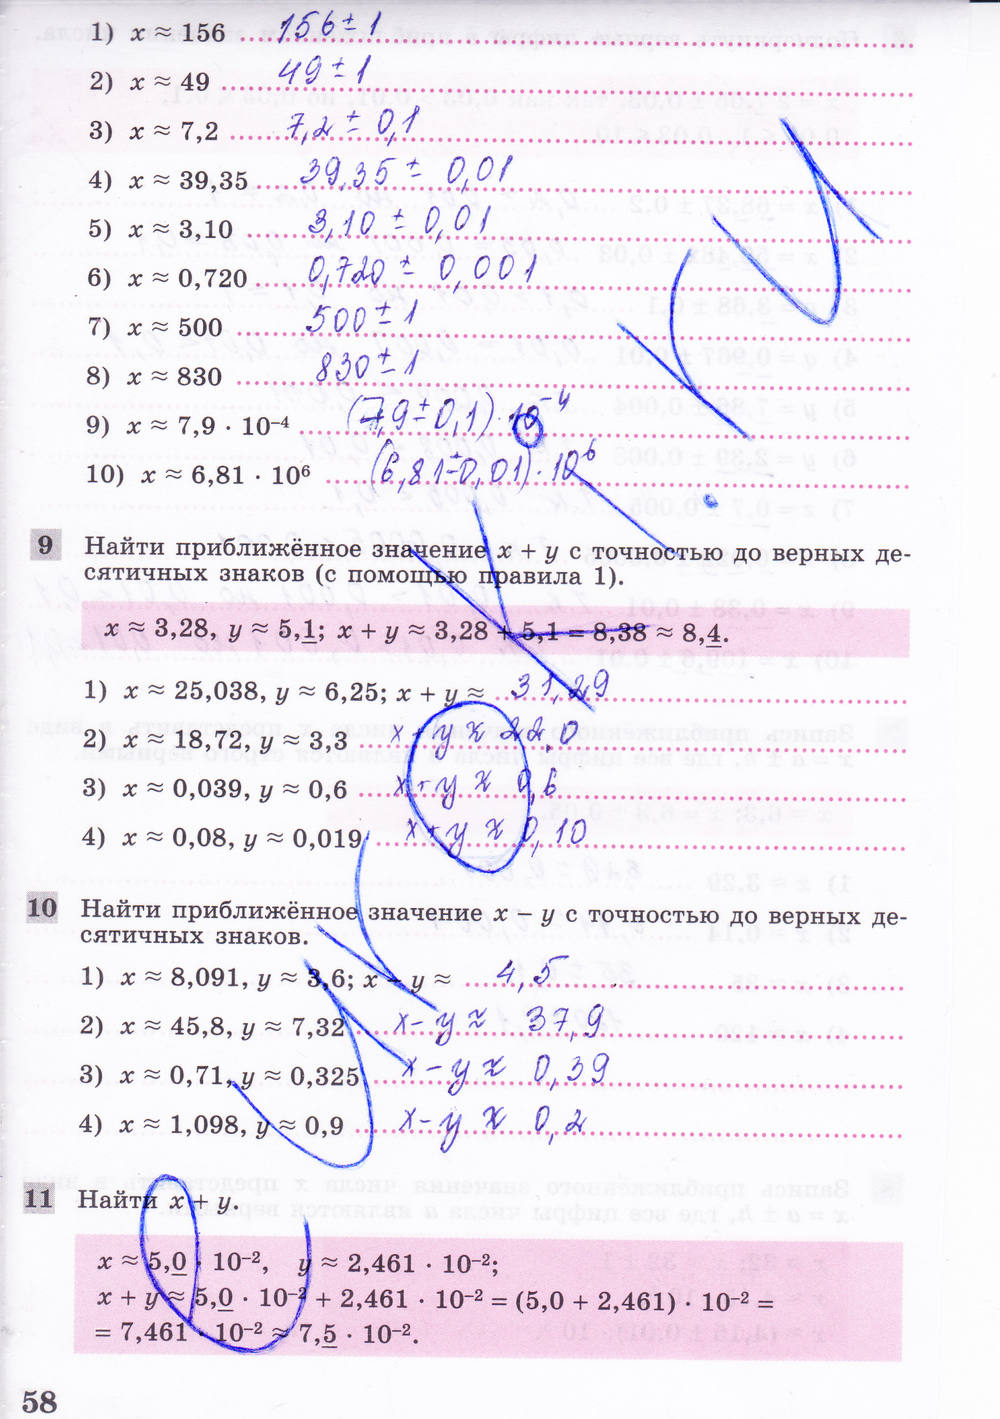 1) x ≈ 156 156 ± 1
2) x ≈ 49 49 ± 1
3) x ≈ 7,2 7,2 ± 0,1
4) x ≈ 39,35 39,35 ± 0,01
5) x ≈ 3,10 3,10 ± 0,01
6) x ≈ 0,720 0,720 ± 0,001
7) x ≈ 500 500 ± 1
8) x ≈ 830 830 ± 1
9) x ≈ 7,9 · 10⁻⁴ (7,9 ± 0,1) · 10⁻⁴
10) x ≈ 6,81 · 10⁶ (6,81 ± 0,01) · 10⁶
9 Найти приближённое значение x + y с точностью до верных де-
сятичных знаков (с помощью правила 1).
x ≈ 3,28, y ≈ 5,1; x + y ≈ 3,28 + 5,1 = 8,38 ≈ 8,4.
1) x ≈ 25,038, y ≈ 6,25; x + y ≈ 31,29
2) x ≈ 18,72, y ≈ 3,3 x + y ≈ 22,0
3) x ≈ 0,039, y ≈ 0,6 x + y ≈ 0,6
4) x ≈ 0,08, y ≈ 0,019 x + y ≈ 0,10
10 Найти приближённое значение x − y с точностью до верных де-
сятичных знаков.
1) x ≈ 8,091, y ≈ 3,6; x − y ≈ 4,5
2) x ≈ 45,8, y ≈ 7,32 x − y ≈ 37,9
3) x ≈ 0,71, y ≈ 0,325 x − y ≈ 0,39
4) x ≈ 1,098, y ≈ 0,9 x − y ≈ 0,2
11 Найти x + y.
x ≈ 5,0 · 10⁻², y ≈ 2,461 · 10⁻²;
x + y ≈ 5,0 · 10⁻² + 2,461 · 10⁻² = (5,0 + 2,461) · 10⁻² =
= 7,461 · 10⁻² ≈ 7,5 · 10⁻².
58